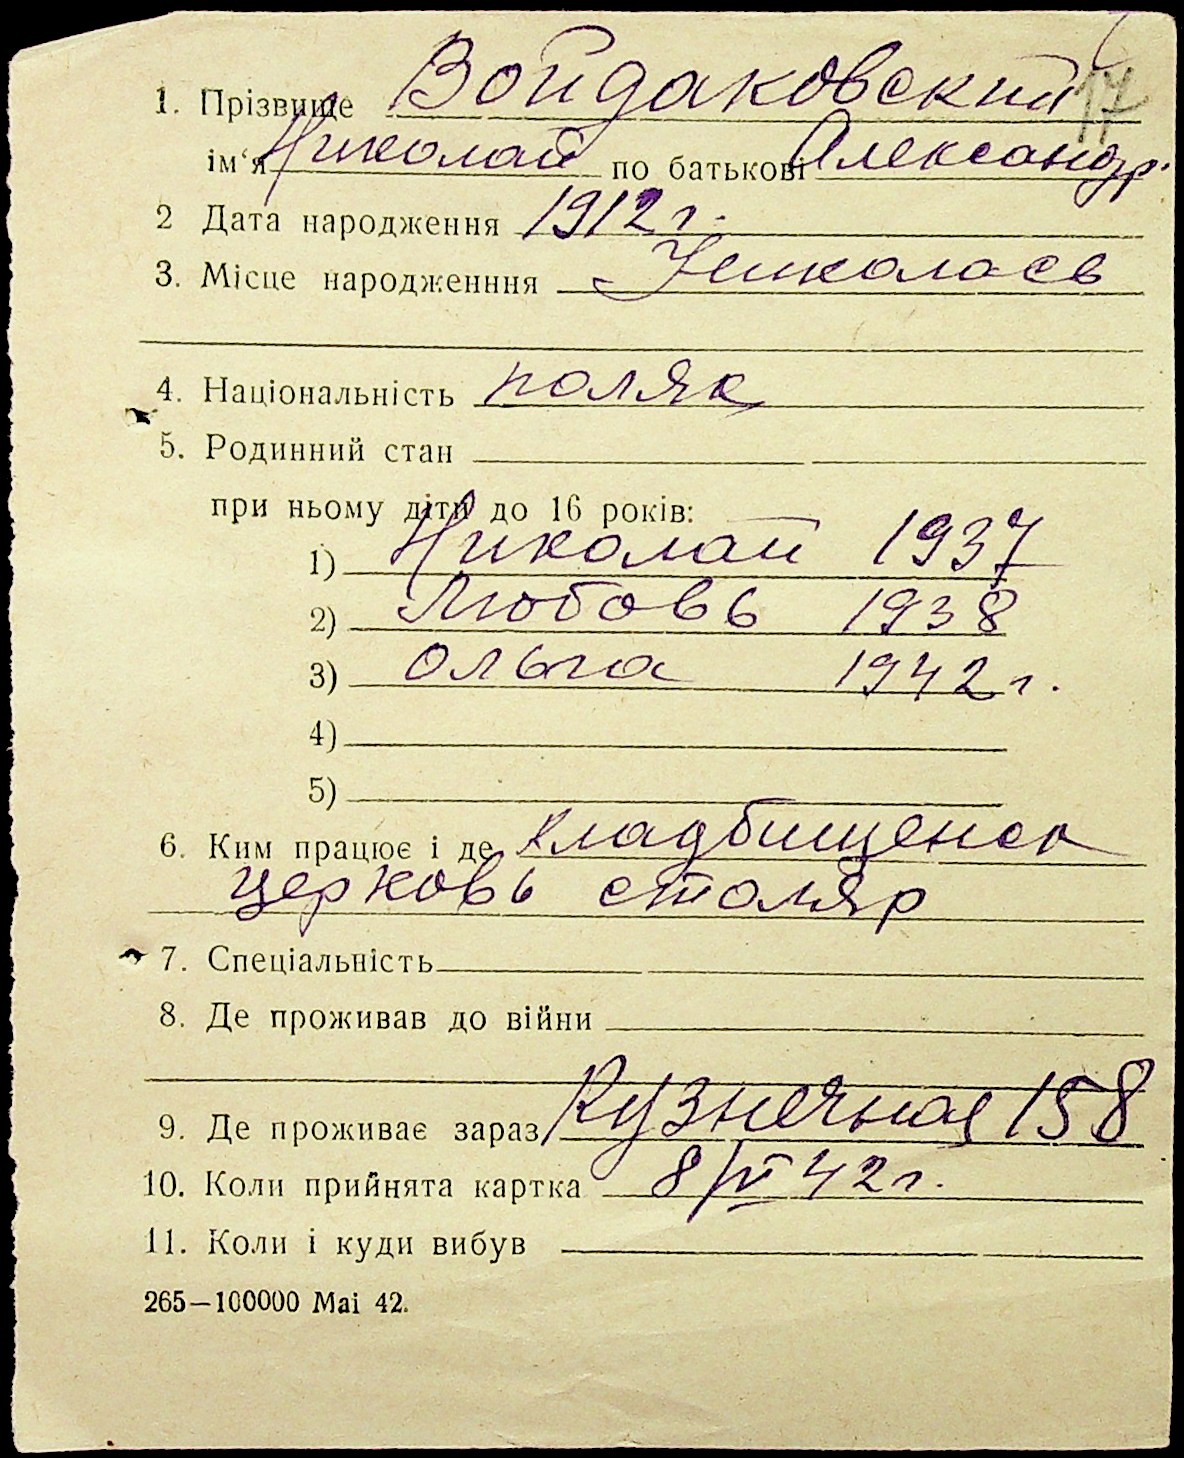 1. Прізвище Войдаковский 17
ім‘я Николай по батькові Александр.
2 Дата народження 1912 г.
3. Місце народженння Николаев
4. Національність поляк
5. Родинний стан
при ньому діти до 16 років:
1) Николай 1937
2) Любовь 1938
3) Ольга 1942 г.
4)
5)
6. Ким працює і де кладбищенск
церковь столяр
7. Спеціальність
8. Де проживав до війни
9. Де проживає зараз Кузнечная 158
10. Коли прийнята картка 8/VI 42 г.
11. Коли і куди вибув
265—100000 Mai 42.